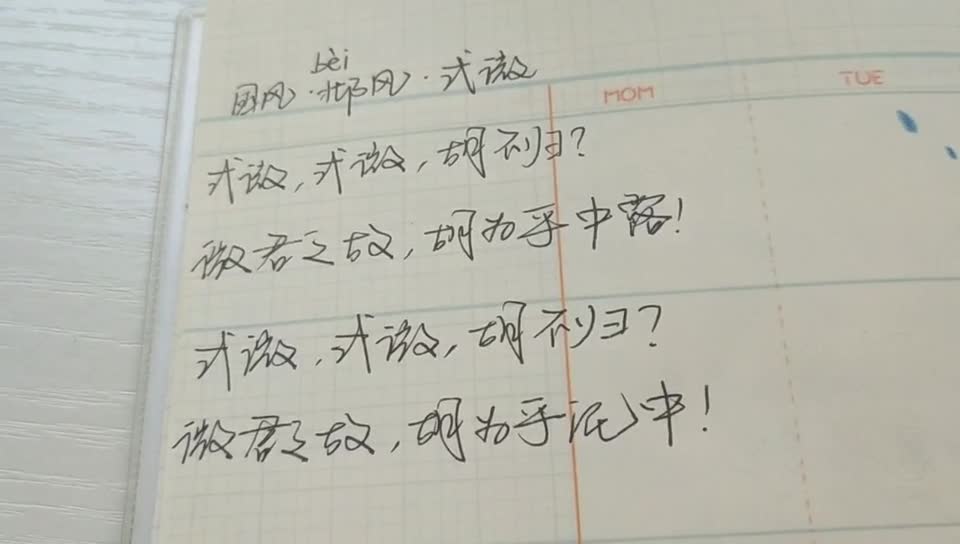 bèi
国风·邶风·式微
MOM TUE
式微,式微,胡不归?
微君之故,胡为乎中露!
式微,式微,胡不归?
微君之故,胡为乎泥中!